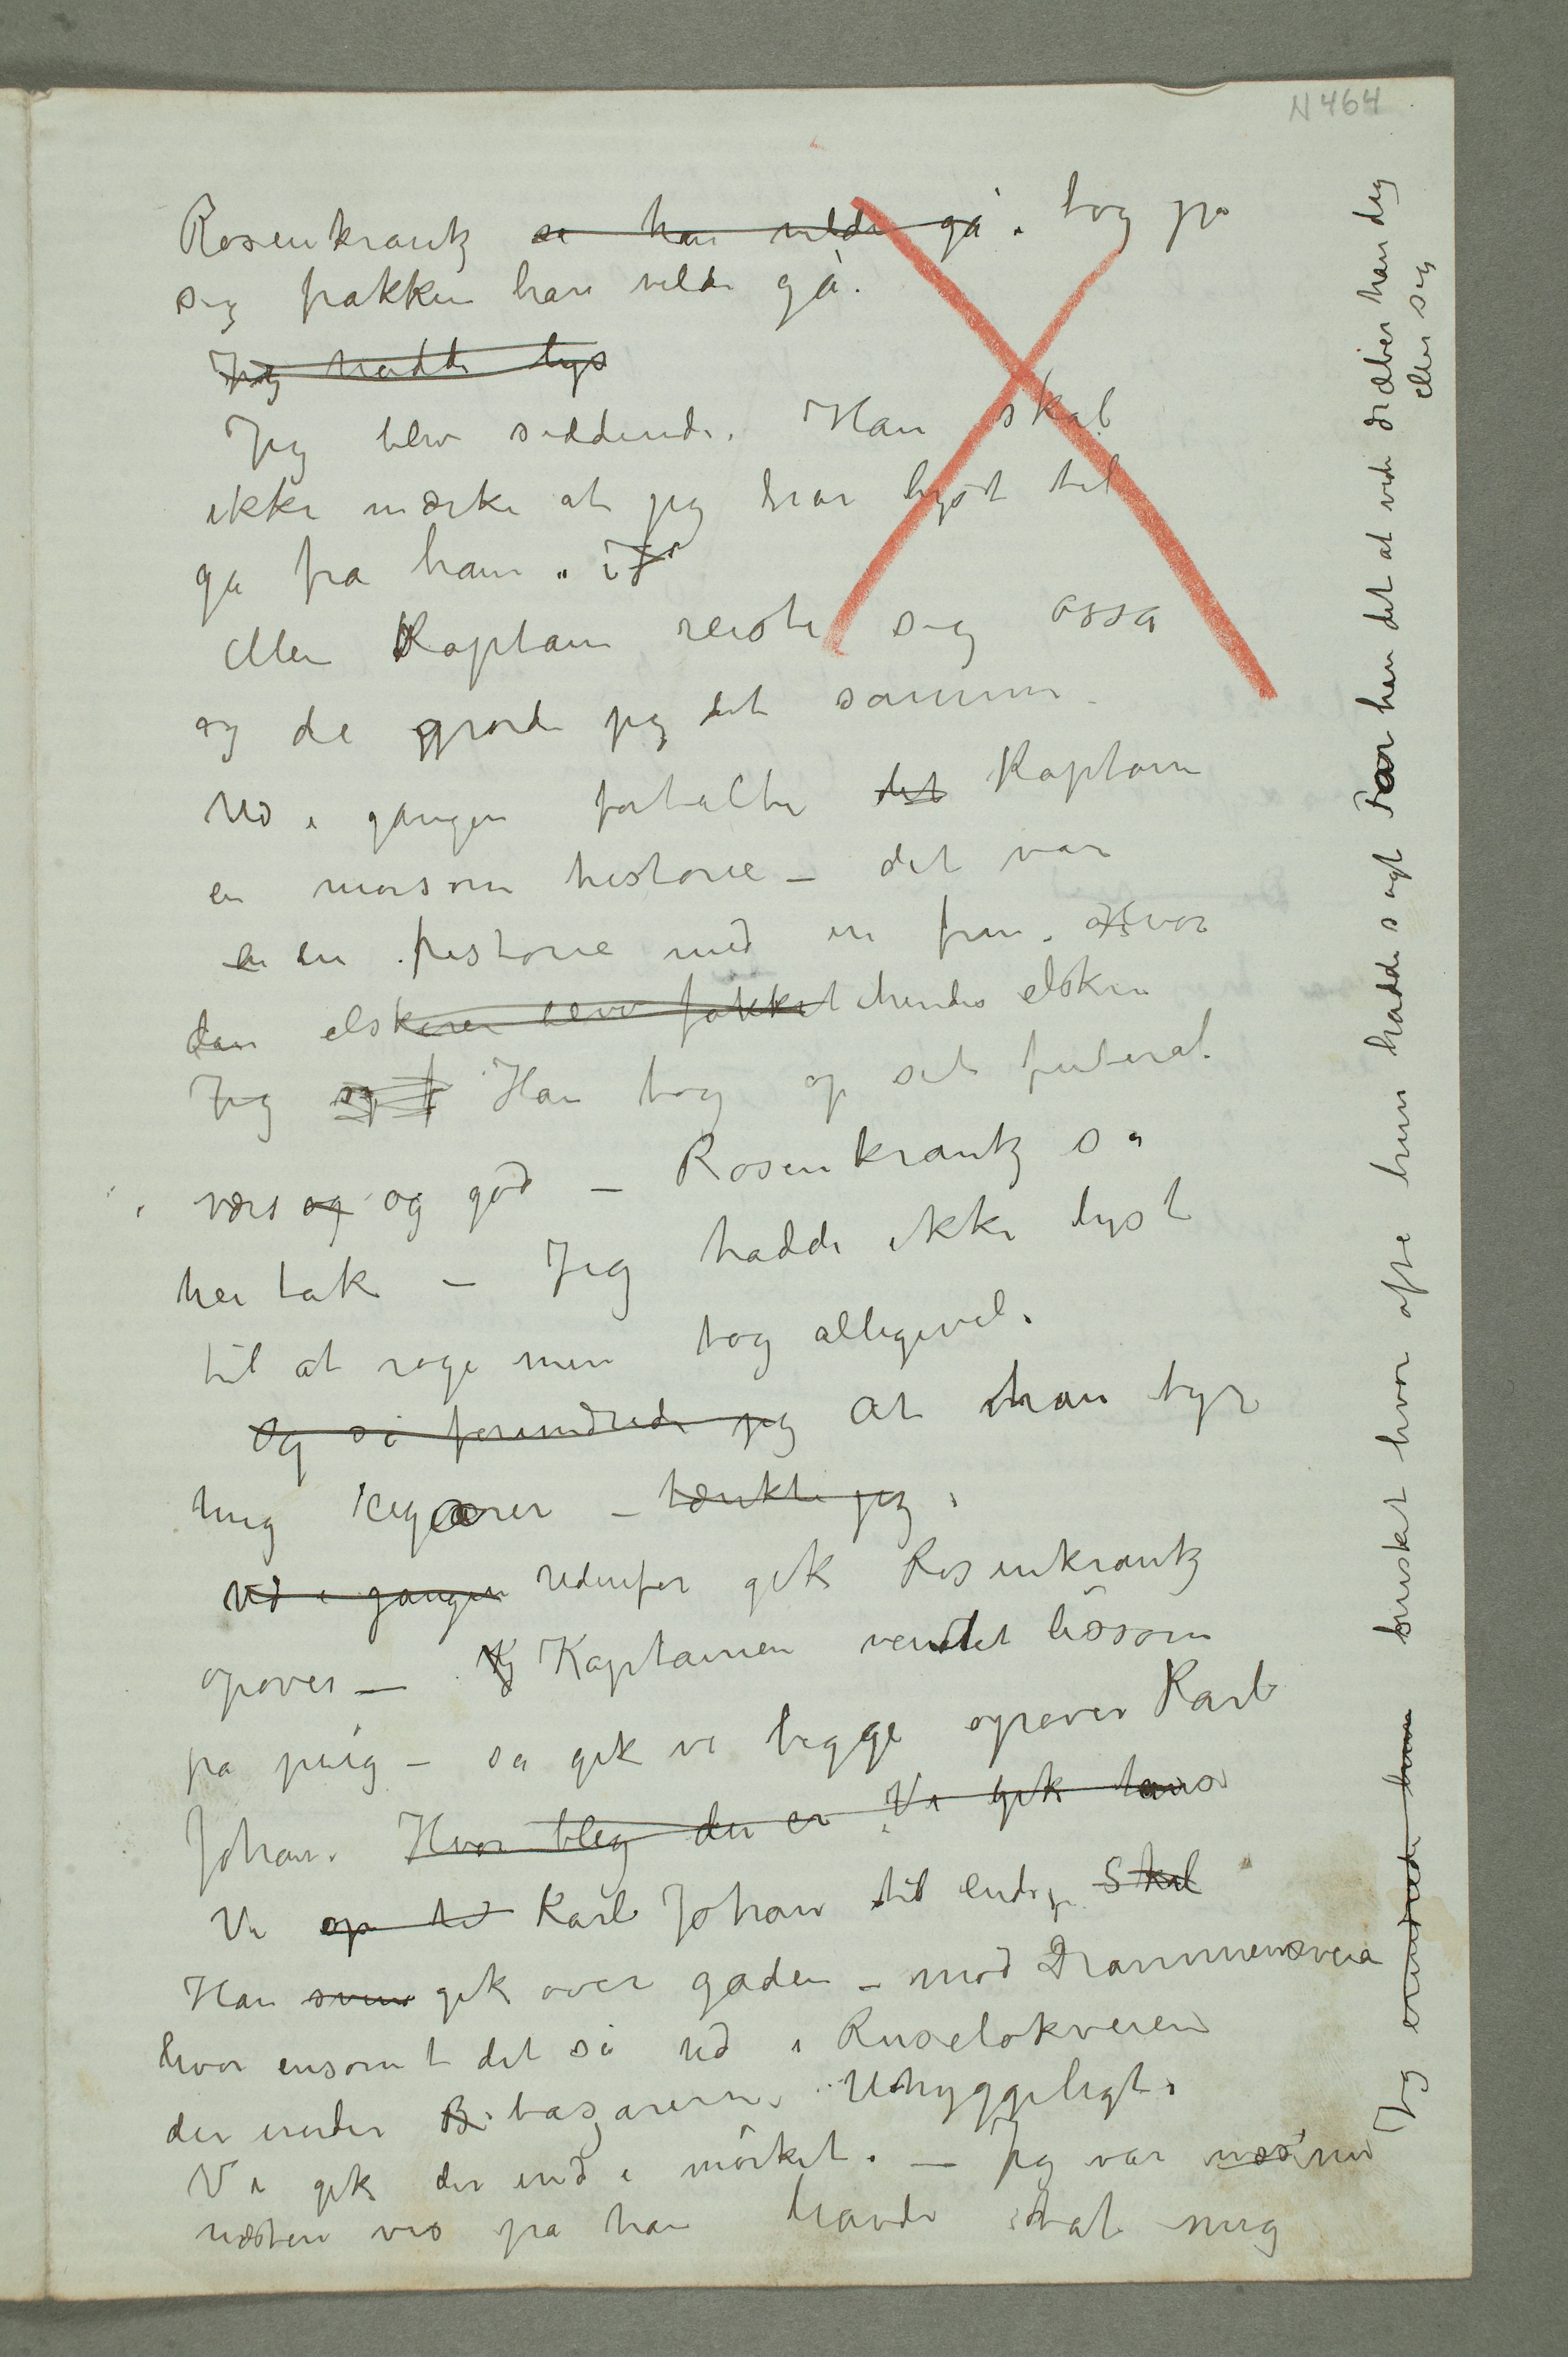 N 464
Rosenkrantz så han vilde gå. tog på
sig frakken han vilde gå.
Jeg hadde lys
Jeg blev siddende. Han skal
ikke mærke at jeg har lyst til
ga fra ham.
Men Kaptain reiste sig ossa
og da gjorde jeg det samme.
Ud i gangen fortalte det Kaptain
en morsom historie – det var
en en historie med en frue. Hvor
dan elskeren blev jokket hendes elsker
Jeg Han tog op sit futeral
værs og og god – Rosenkrantz sa
nei tak – Jeg hadde ikke lyst
til at røge men tog alligevel.
Og så forundrede jeg at han byr
mig cigarer – tænkte jeg.
Ud i gangen Udenfor gik Rosenkrantz
opover – Kaptainen ventet lissom
på mig – så gik vi begge opover Karl
Johan. Hvor bleg du er Vi gik taus
Vi op til Karl Johan til ende. Skal
Han svin gik over gaden – mod Drammensveia
hvor ensomt det så ud i Ruseløkveien
der under B bazarerne. Uhyggeligt.
Vi gik der ind i mørket. – Jeg var næsten
næsten vis på han havde skat mig
Jeg erindrede hun husket hvor ofte hun hadde sagt Får han det at vide dræber han dig
eller sig